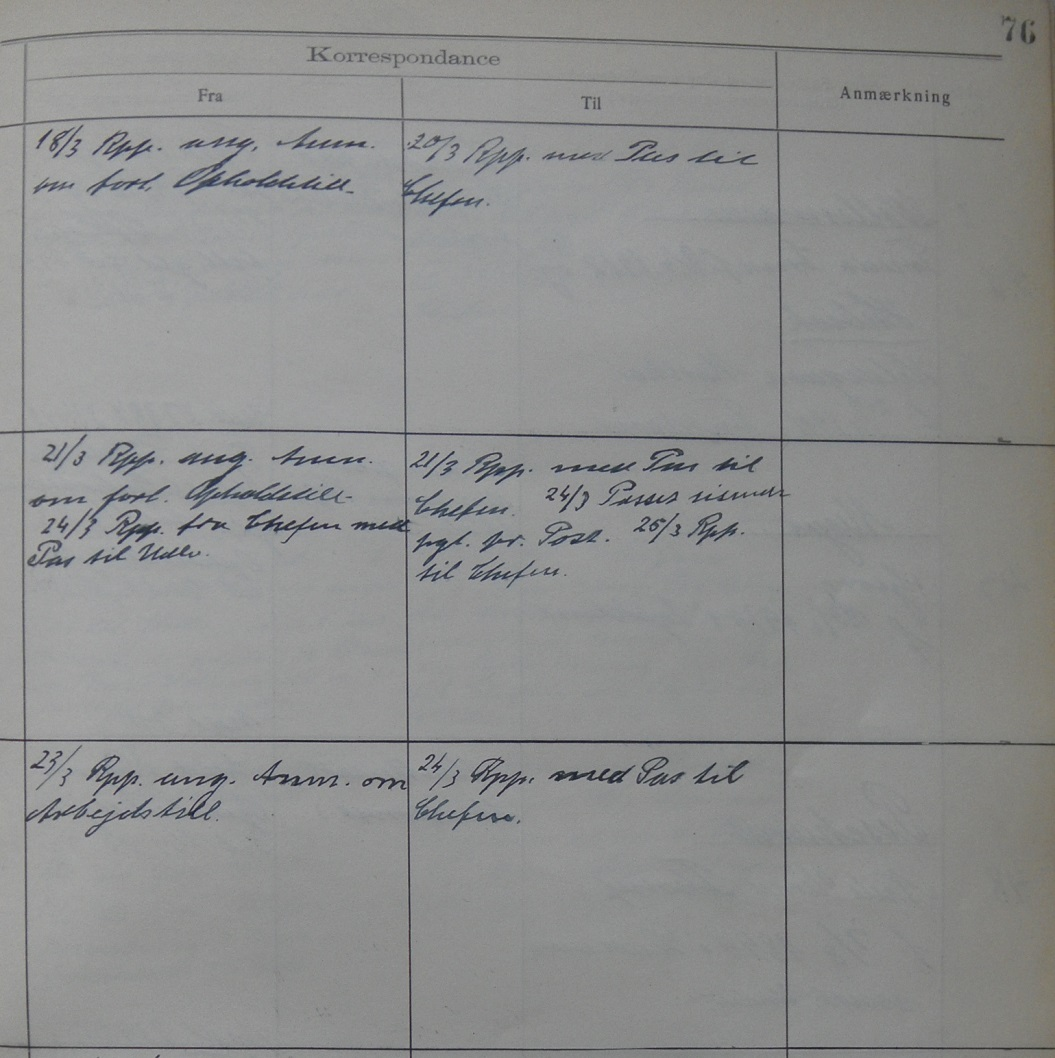 76
Korrespondance
Fra
Til
Anmærkning
18/3 Rpp. ang. Anm.
om forl. Opholdstill.
20/3 Rpp. med Pas til
Chefen.
21/3 Rpp. ang. Anm.
om forl. Opholdstill.
24/3 Rpp. fra Chefen med
Pas til Udlev.
21/3 Rpp. med Pas til
Chefen. 24/3 Passet
pr. Post. 26/3 Rpp.
til Chefen.
23/3 Rpp. ang. Anm. om
Arbejdstill.
24/3 Rpp. med Pas til
Chefen.